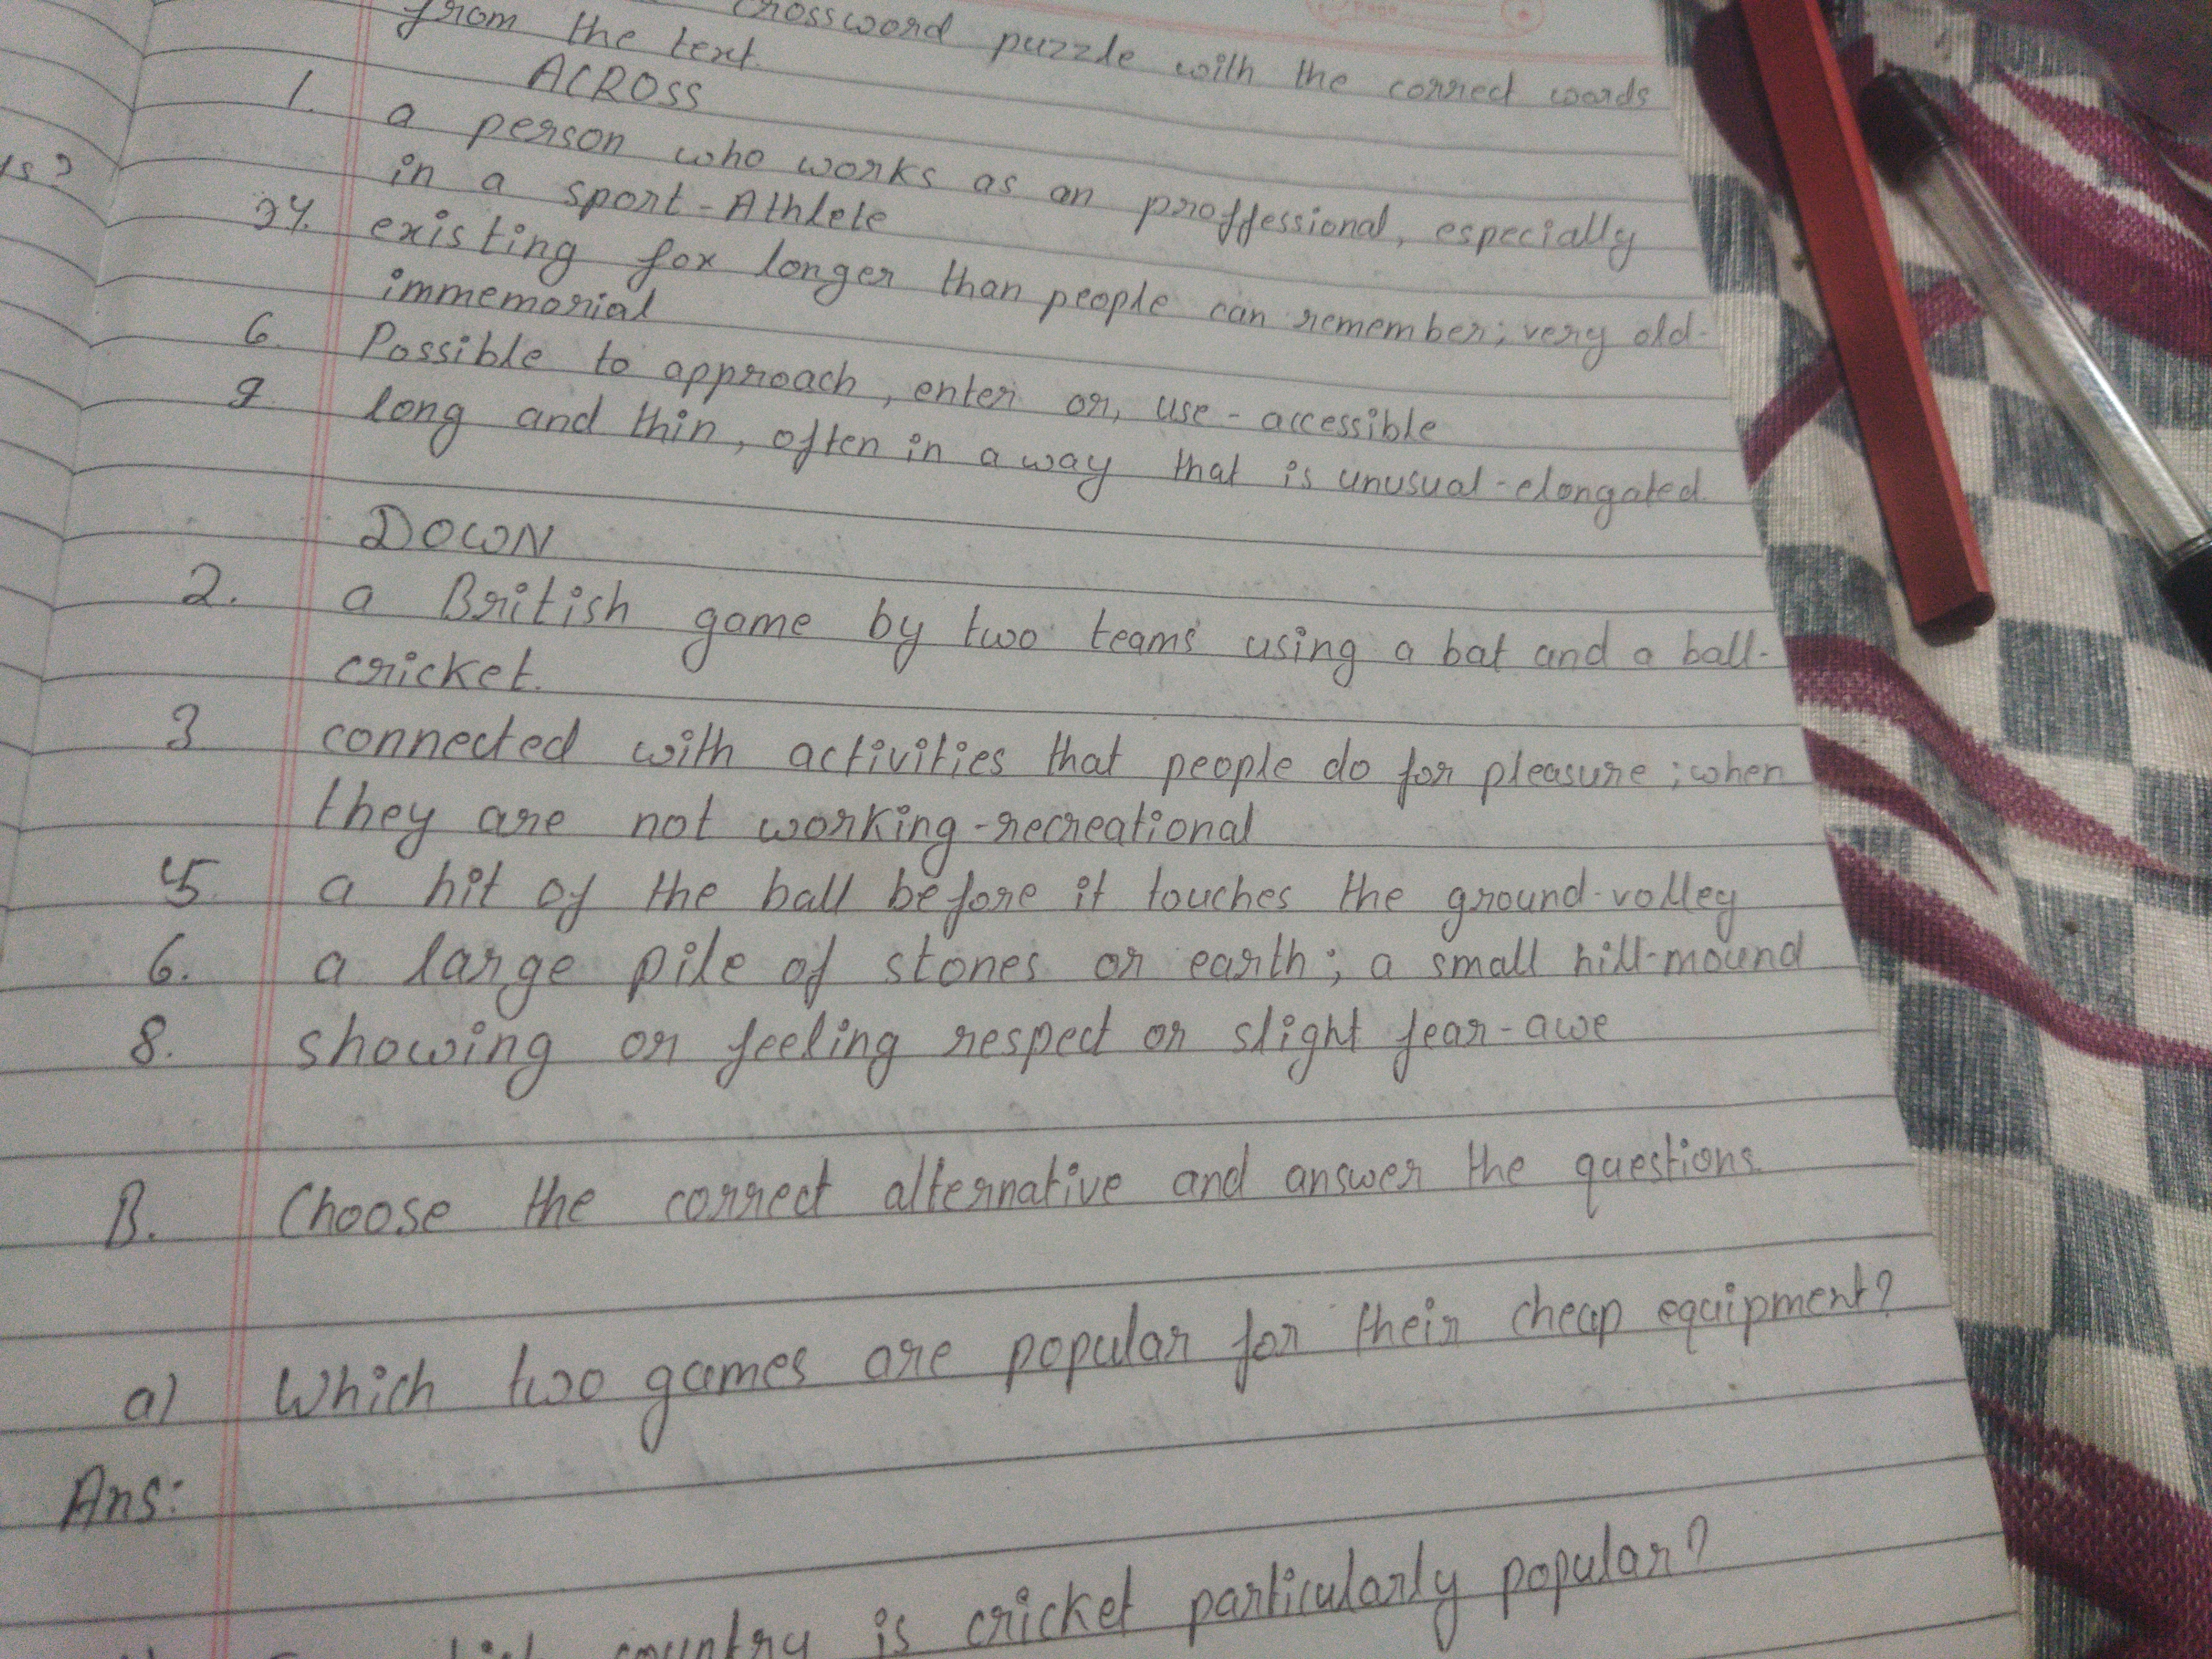 crossword puzzle with the correct words
from the text.
ACROSS
1. a person who works as an proffessional, especially
in a sport-Athlete
4. existing for longer than people can remember; very old-
immemorial
6. Possible to approach, enter or, use-accessible
9. long and thin, often in a way that is unusual-elongated.
DOWN
2. a British game by two teams using a bat and a ball-
cricket.
3 connected with activities that people do for pleasure; when
they are not working-recreational
5. a hit of the ball before it touches the ground-volley
6. a large pile of stones or earth; a small hill-mound
8. showing or feeling respect or slight fear-awe
B. Choose the correct alternative and answer the questions.
a) Which two games are popular for their cheap equipment?
Ans:
country is cricket particularly popular?